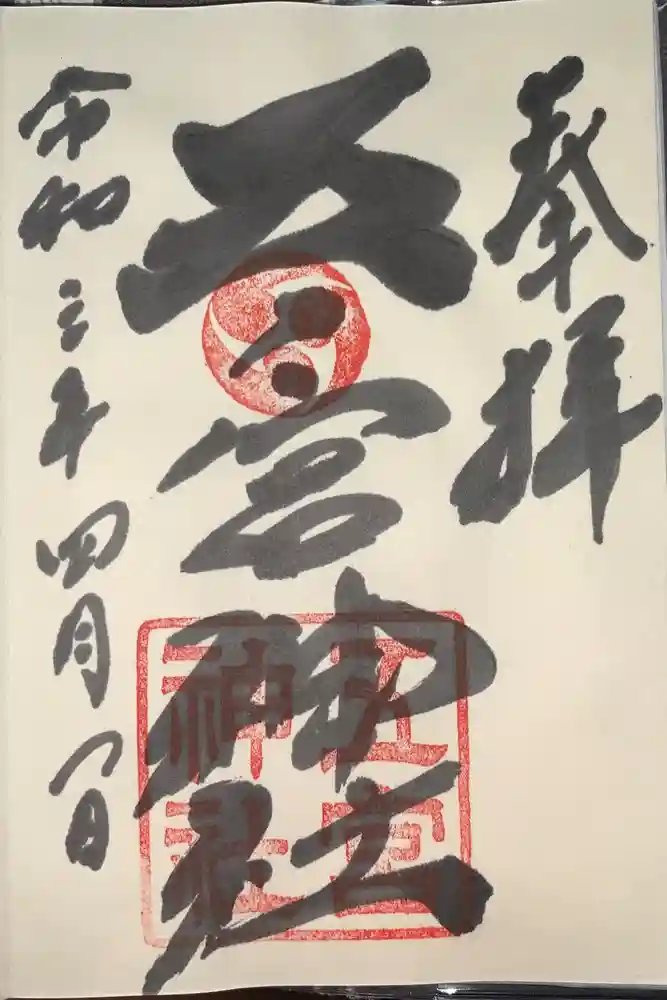 奉拝
五宮神社
五宮
神社
令和三年四月一日